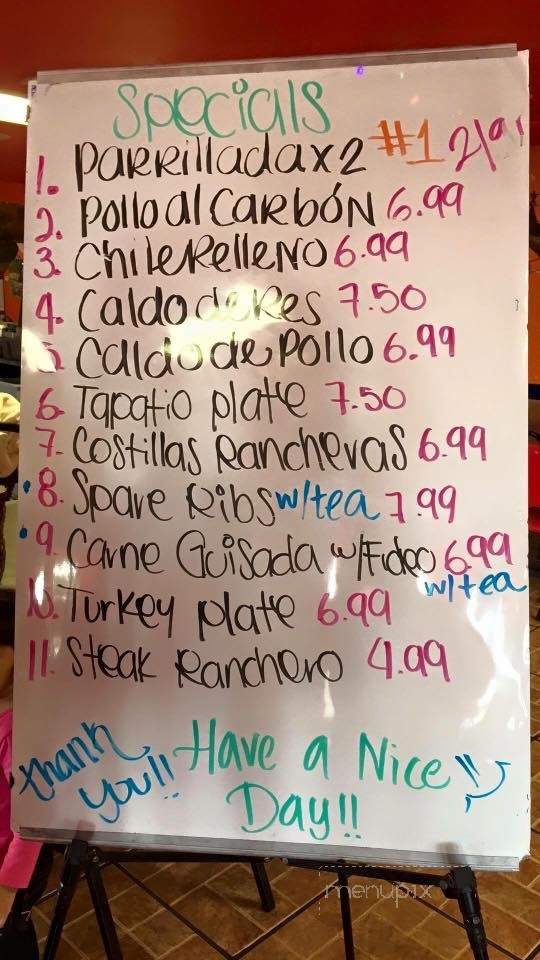 Specials
1. Parrillada x2 #1
2. Pollo al Carbón 6.99
3. Chile Relleno 6.99
4. Caldo de Res 7.50
5. Caldo de Pollo 6.99
6. Tapatio plate 7.50
7. Costillas Rancheras 6.99
8. Spare Ribs w/tea 7.99
9. Carne Guisada w/Fideo 6.99
w/tea
10. Turkey plate 6.99
11. Steak Ranchero 4.99
Thank you!! Have a Nice
Day!!
menupix